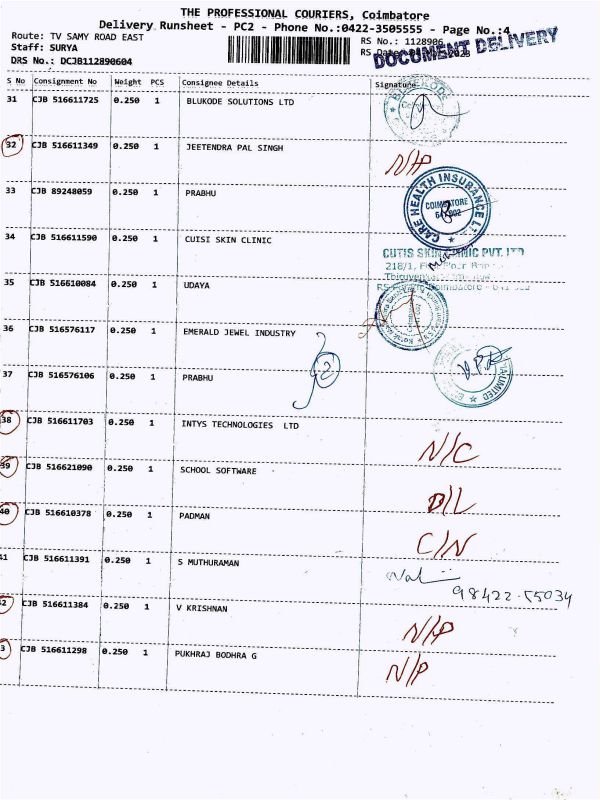 THE PROFESSIONAL COURIERS, Coimbatore
Delivery Runsheet - PC2 - Phone No.:0422-3505555 - Page No.:4
Route: TV SAMY ROAD EAST
RS No.: 1128906
Staff: SURYA
RS Date
DOCUMENT DELIVERY
DRS No.: DCJB112890604
S No Consignment No Weight PCS Consignee Details Signature
31 CJB 516611725 0.250 1 BLUKODE SOLUTIONS LTD
BLUKODE
32 CJB 516611349 0.250 1 JEETENDRA PAL SINGH N/P
33 CJB 89248059 0.250 1 PRABHU
CARE HEALTH INSURANCE
COIMBATORE
34 CJB 516611590 0.250 1 CUISI SKIN CLINIC
CUTIS SKIN CLINIC PVT. LTD
218/1,
35 CJB 516610084 0.250 1 UDAYA
36 CJB 516576117 0.250 1 EMERALD JEWEL INDUSTRY
37 CJB 516576106 0.250 1 PRABHU
38 CJB 516611703 0.250 1 INTYS TECHNOLOGIES LTD N/C
39 CJB 516621090 0.250 1 SCHOOL SOFTWARE D/L
40 CJB 516610378 0.250 1 PADMAN C/N
41 CJB 516611391 0.250 1 S MUTHURAMAN
98422-55034
42 CJB 516611384 0.250 1 V KRISHNAN N/P
3 CJB 516611298 0.250 1 PUKHRAJ BODHRA G N/P